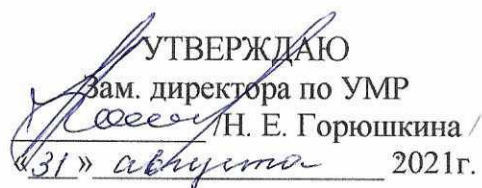 УТВЕРЖДАЮ
Зам. директора по УМР
/Н. Е. Горюшкина
«31» августа 2021г.